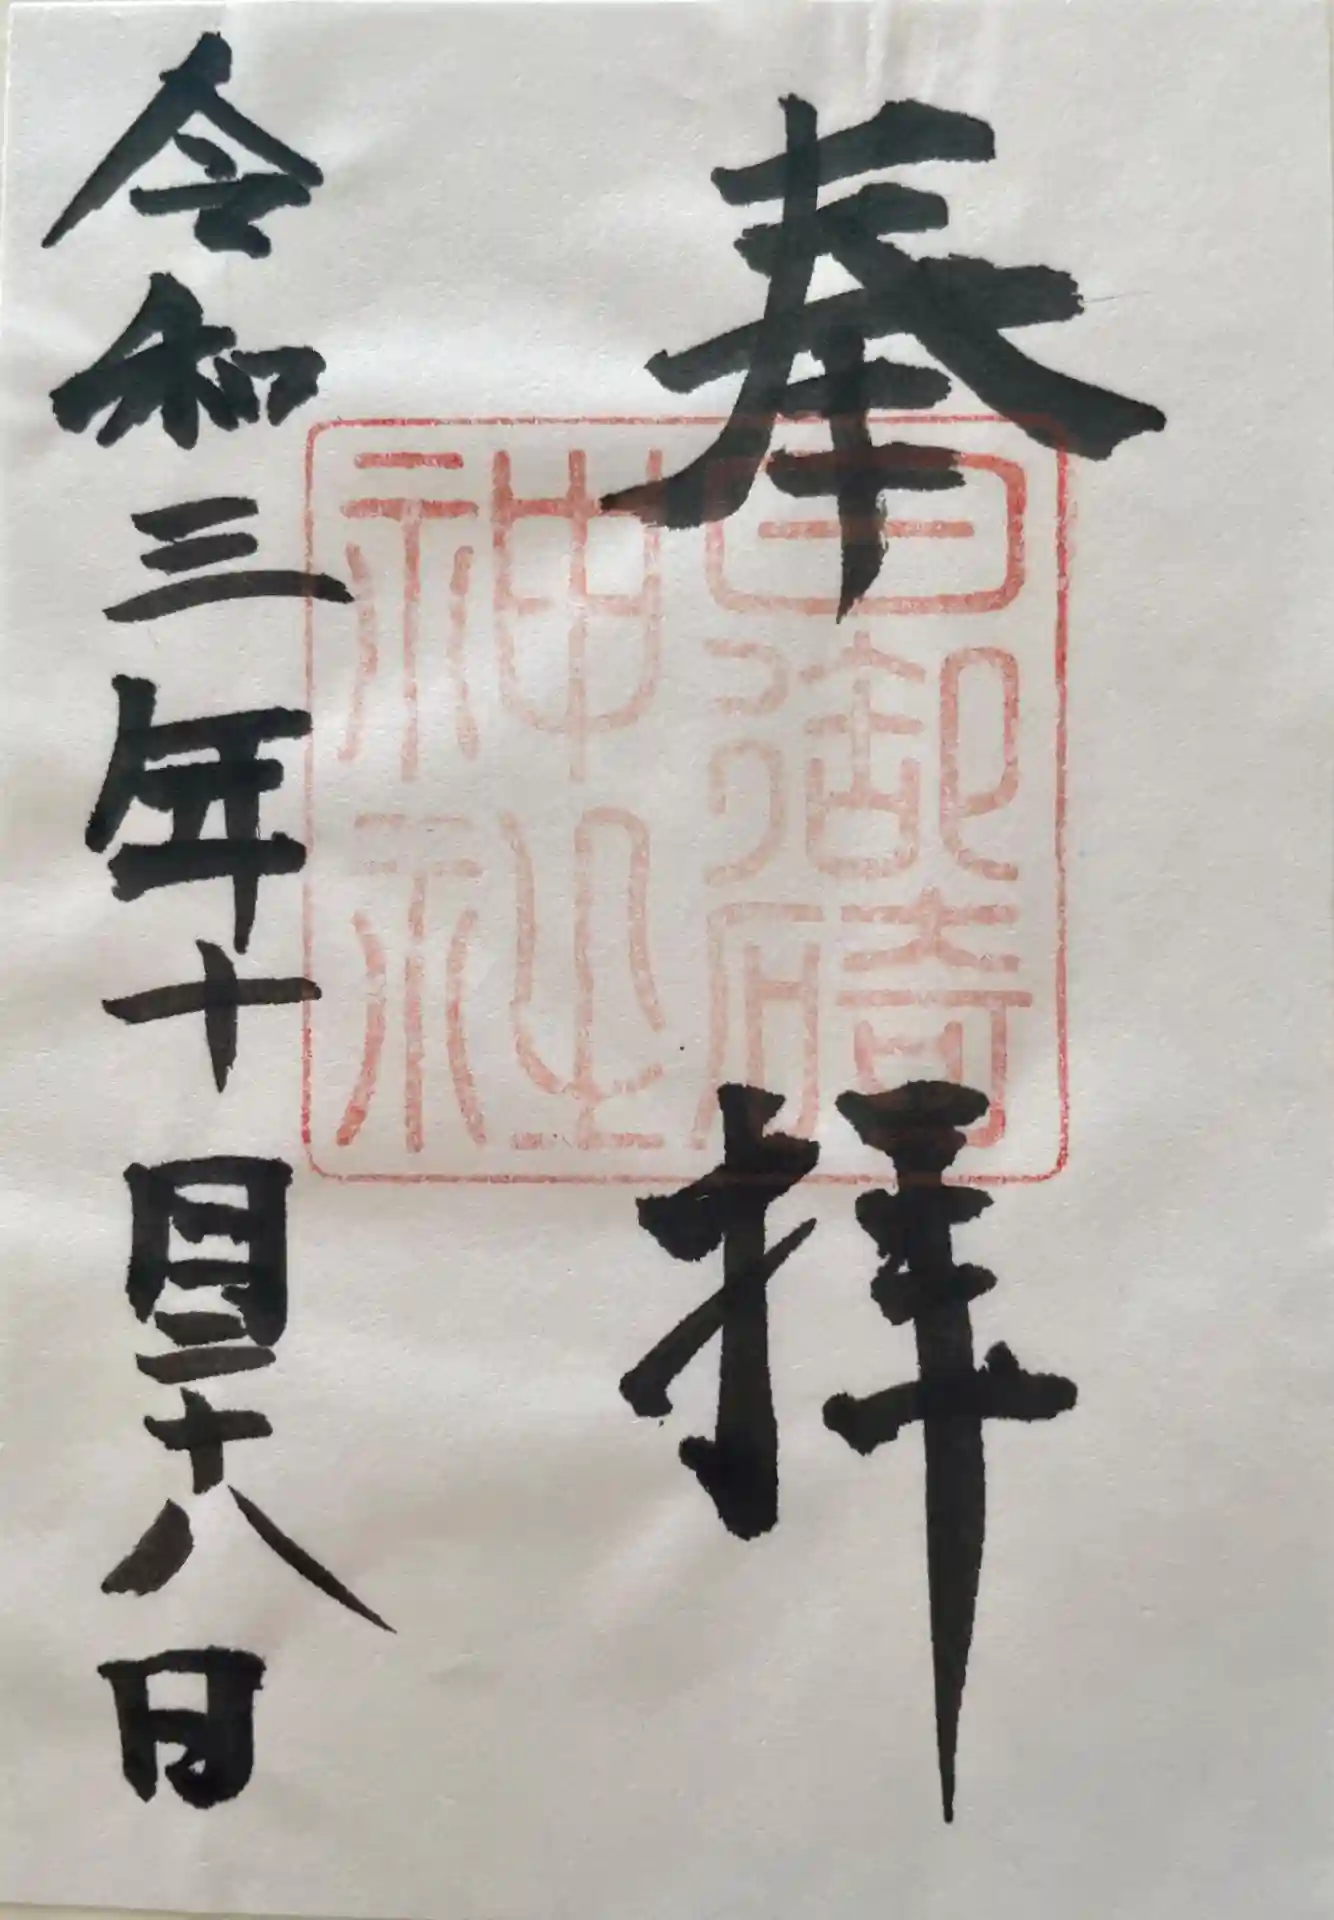 奉拝
日御碕
神社
令和三年十月二十八日